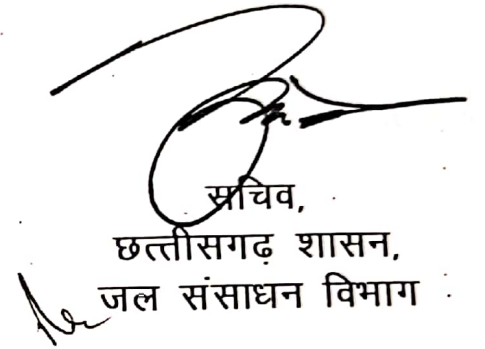 सचिव,
छत्तीसगढ़ शासन,
जल संसाधन विभाग